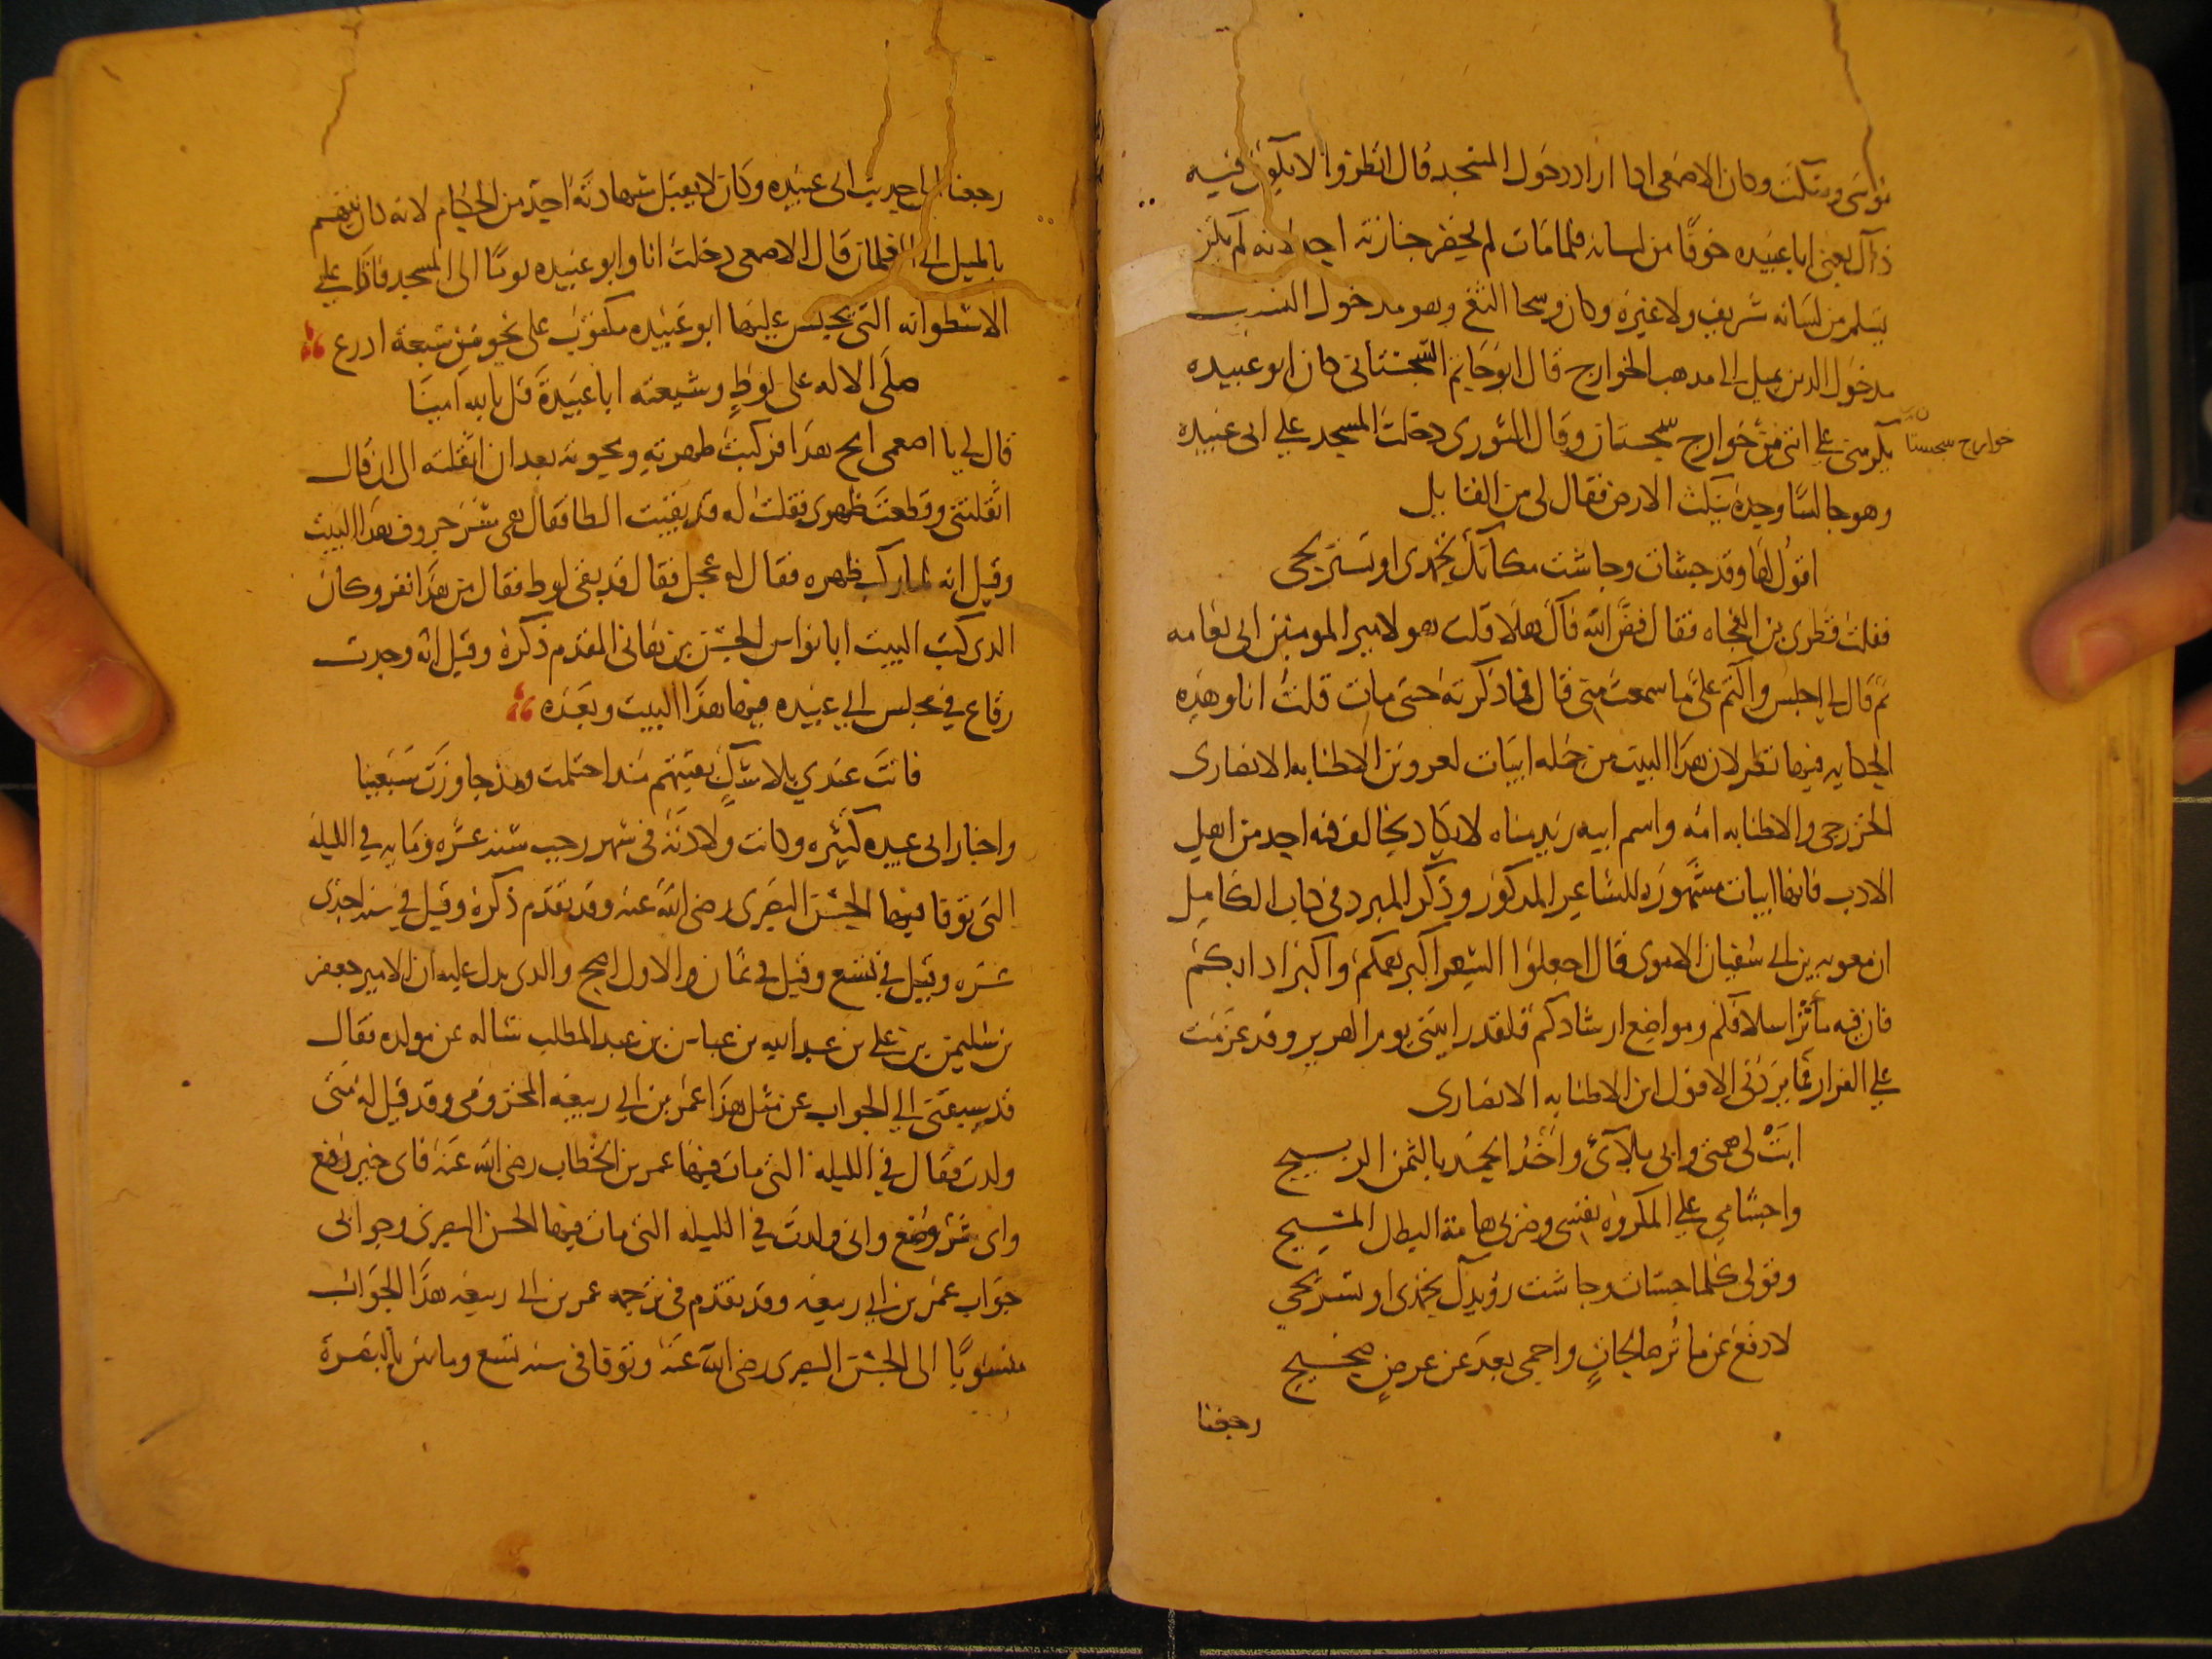 موسى وسكت وكان الاصمعى اذا اراد دخول المسجد قال انظروا لا يكون فيه
ذاك يعنى ابا عبيده خوفا من لسانه فلما مات لم يحضر جنازته احد لانه لم يكن
يسلم من لسانه شريف ولا غيره وكان وسخا الثغ وهو مدخول النسب
مدخول الدين يميل الى مذهب الخوارج قال ابو حاتم السجستانى كان ابو عبيده
يكرمنى على اننى من خوارج سجستان وقال الثورى دخلت المسجد على ابى عبيده
خوارج سجستان
وهو جالسا وحده ينكث الارض فقال لى من القايل
اقول لها وقد جشات وجاشت مكانك تحمدى او تستريحى
فقلت قطرى بن الفجاه فقال فض الله فاك هلا قلت هو لامير المومنين ابى نعامه
ثم قال لى اجلس واكتم على ما سمعت منى قال فما ذكرته حتى مات قلت انا وهذه
الحكايه فيها نظر لان هذا البيت من جمله ابيات لعمرو بن الاطنابه الانصارى
الخزرجى والاطنابه امه واسم ابيه زيد مناه لا يكاد يخالف فيه احد من اهل
الادب فانها ابيات مشهوره للشاعر المذكور وذكر المبرد فى كتاب الكامل
ان معويه بن ابى سفيان الاموى قال اجعلوا الشعر اكبر همكم واكثر ادابكم
فان فيه مآثر اسلافكم ومواضع ارشادكم فلقد رايتنى يوم الهرير وقد عزمت
على الفرار فما يردنى الا قول ابن الاطنابه الانصارى
ابت لى همتى وابى بلآئ واخذ الحمد بالثمن الربيح
واجشامى على المكروه نفسى وضربى هامة البطل المشيح
وقولى كلما جشات وجاشت رويدك تحمدى او تستريحى
لادفع عن ماثر صالحات واحمى بعد عن عرض صحيح
رجعنا
رجعنا الى حديث ابى عبيده وكان لا يقبل شهادته احد من الحكام لانه كان يتهم
بالميل الى الغلمان قال الاصمعى دخلت انا وابو عبيده يوما الى المسجد فاذا على
الاسطوانه التى يجلس اليها ابو عبيده مكتوب على نحو من سبعة ادرع
صلى الاله على لوط وشيعته ابا عبيدة قل بالله آمينا
قال لى يا اصمعى امح هذا فركبت ظهره ومحوته بعد ان اثقلته الى ان قال
اثقلتنى وقطعت ظهرى فقلت له قد بقيت الطا فقال هى شر حروف هذا البيت
وقيل انه لما ركب ظهره فقال له عجل فقال قد بقى لوط فقال من هذا نفر وكان
الذى كتب البيت ابا نواس الحسن بن هانى المقدم ذكره وقيل انه وجدت
رقاع فى مجلس ابى عبيده فيها هذا البيت وبعده
فانت عندي بلا شك بقيتهم منذ احتلمت ومذ جاوزت سبعينا
واخبار ابى عبيده كثيره وكانت ولادته فى شهر رجب سنه عشره ومايه فى الليله
التى توفا فيها الحسن البصرى رضى الله عنه وقد تقدم ذكره وقيل فى سنه احدى
عشره وقيل فى تسع وقيل فى ثمان والاول اصح والذى يدل عليه ان الامير جعفر
بن سليمن بن على بن عبد الله بن عباس بن عبد المطلب ساله عن مولده فقال
قد سبقنى الى الجواب عن مثل هذا عمر بن ابى ربيعه المخزومى وقد قيل له متى
ولدت فقال فى الليله التى مات فيها عمر بن الخطاب رضى الله عنه فاى خير رفع
واى شر وضع وانى ولدت فى الليله التى مات فيها الحسن البصرى وجوابى
جواب عمر بن ابى ربيعه وقد تقدم فى ترجمه عمر بن ابى ربيعه هذا الجواب
منسوبا الى الحسن البصرى رضى الله عنه وتوفا فى سنه تسع ومايتن بالبصرة